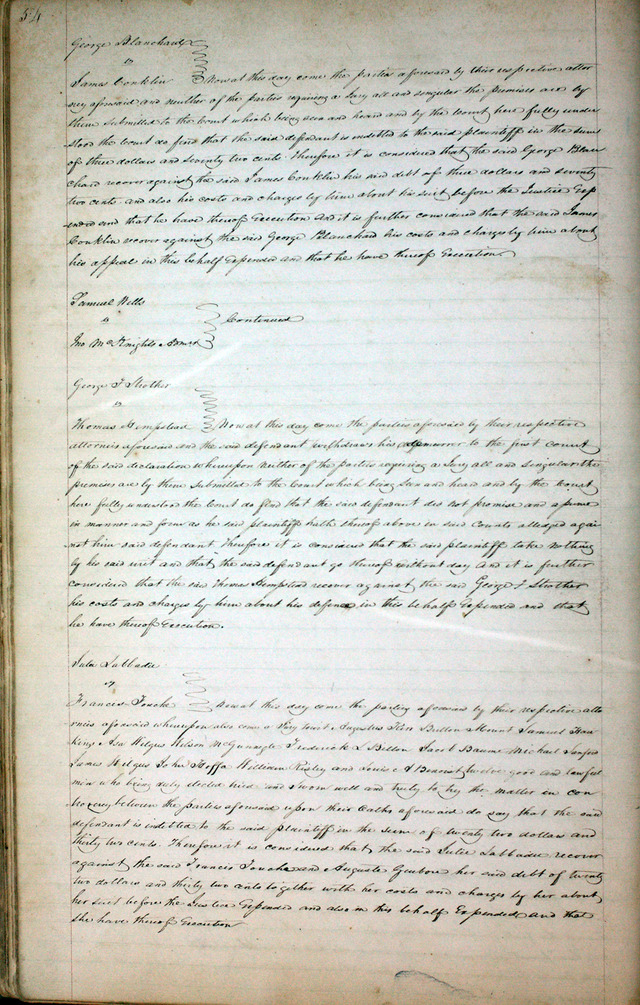 54
George Blanchard
vs
James Conklin Now at this day come the parties aforesaid by their respective attor
ney aforesaid and neither of the parties requiring a Jury all and singular the premises are by
them Submitted to the Court which being seen and heard and by the Court here fully under
stood the Court do find that the said defendant is indebted to the said plaintiff in the sum
of three dollars and seventy two cents. Therefore it is considered that the said George Blan
chard recover against the said James Conklin his said debt of three dollars and seventy
two cents and also his costs and charges by him about his suit before the Justice Exp
ended and that he have thereof Execution And it is further considered that the said James
Conklin recover against the said George Blanchard his costs and charges by him about
his appeal in this behalf Expended and that he have thereof Execution
Samuel Wells
vs
Jno McKnights Admrs Continued
George F Strother
vs
Thomas Hempstead Now at this day come the parties aforesaid by their respective
attornies aforesaid and the said defendant withdraws his demurrer to the first count
of the said declaration whereupon neither of the parties requiring a Jury all and singular the
premises are by them Submitted to the Court which being seen and heard and by the Court
here fully understood the Court do find that the said defendant does not promise and assume
in manner and form as he said plaintiff hath thereof above in said Counts alleged agai
nst him said defendant Therefore it is considered that the said plaintiff take nothing
by his said writ and that the said defendant go thereof without day And it is further
considered that the said Thomas Hempstead recover against the said George F Strother
his costs and charges by him about his defence in this behalf Expended and that
he have thereof Execution.
Labbadie
vs
Francis Now at this day come the parties aforesaid by their respective atto
rnies aforesaid whereupon also come a Jury towit Augustus Mount Samuel Haw
kins Asa Wilgus Wilson McGunnegle Frederick L Billon Jacob Baum Michael Sanford
James Wilgus John William Risley and Louis A Benoist twelve good and lawful
men who being duly elected tried and Sworn well and truly to try the matter in con
troversy between the parties aforesaid upon their Oaths aforesaid do say that the said
defendant is indebted to the said plaintiff in the sum of twenty two dollars and
thirty two cents. Therefore it is considered that the said Labbadie recover
against the said Francis and Auguste her said debt of twenty
two dollars and thirty two cents together with her costs and charges by her about
her suit before the Justice Expended and also in this behalf Expended and that
she have thereof Execution